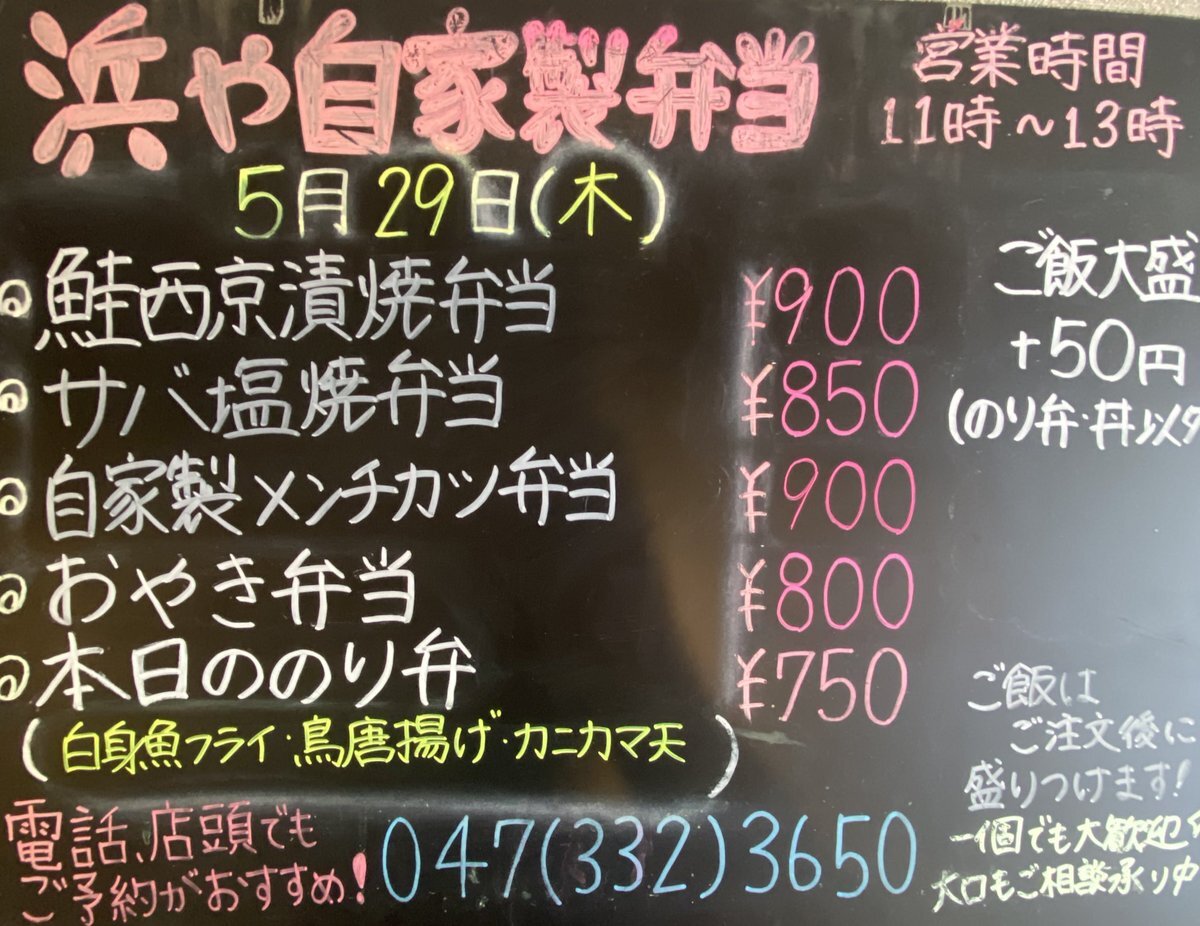 浜や自家製弁当
営業時間
11時~13時
5月29日(木)
◎鮭西京漬焼弁当 ¥900
◎サバ塩焼弁当 ¥850
◎自家製メンチカツ弁当 ¥900
◎おやき弁当 ¥800
◎本日ののり弁 ¥750
(白身魚フライ·鳥唐揚げ·カニカマ天)
ご飯大盛
+50円
(のり弁·丼以外
ご飯は
ご注文後に
盛りつけます!
一個でも大歓迎
大口もご相談承り中
電話、店頭でも
ご予約がおすすめ!
047(332)3650